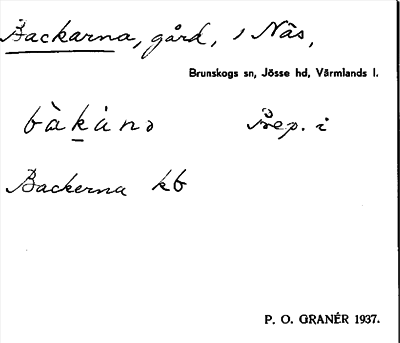 Backarna, gård, 1 Näs,
Brunskogs sn, Jösse hd, Värmlands l.
bàk̲ànɔ Prep. i
Backerna kb
P. O. GRANÉR 1937.